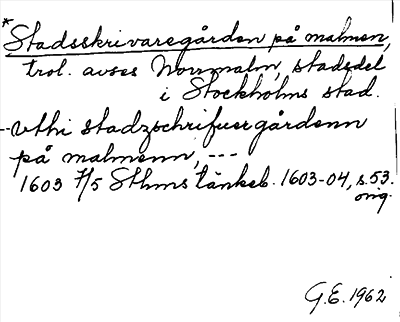 *Stadsskrivaregården på malmen,
trol. avses Norrmalm, stadsdel
i Stockholms stad.
--vthi stadzschrifuer gårdenn
på malmenn, ---
1603 7/5 Sthms tänkeb. 1603-04, s. 53.
orig.
G.E. 1962